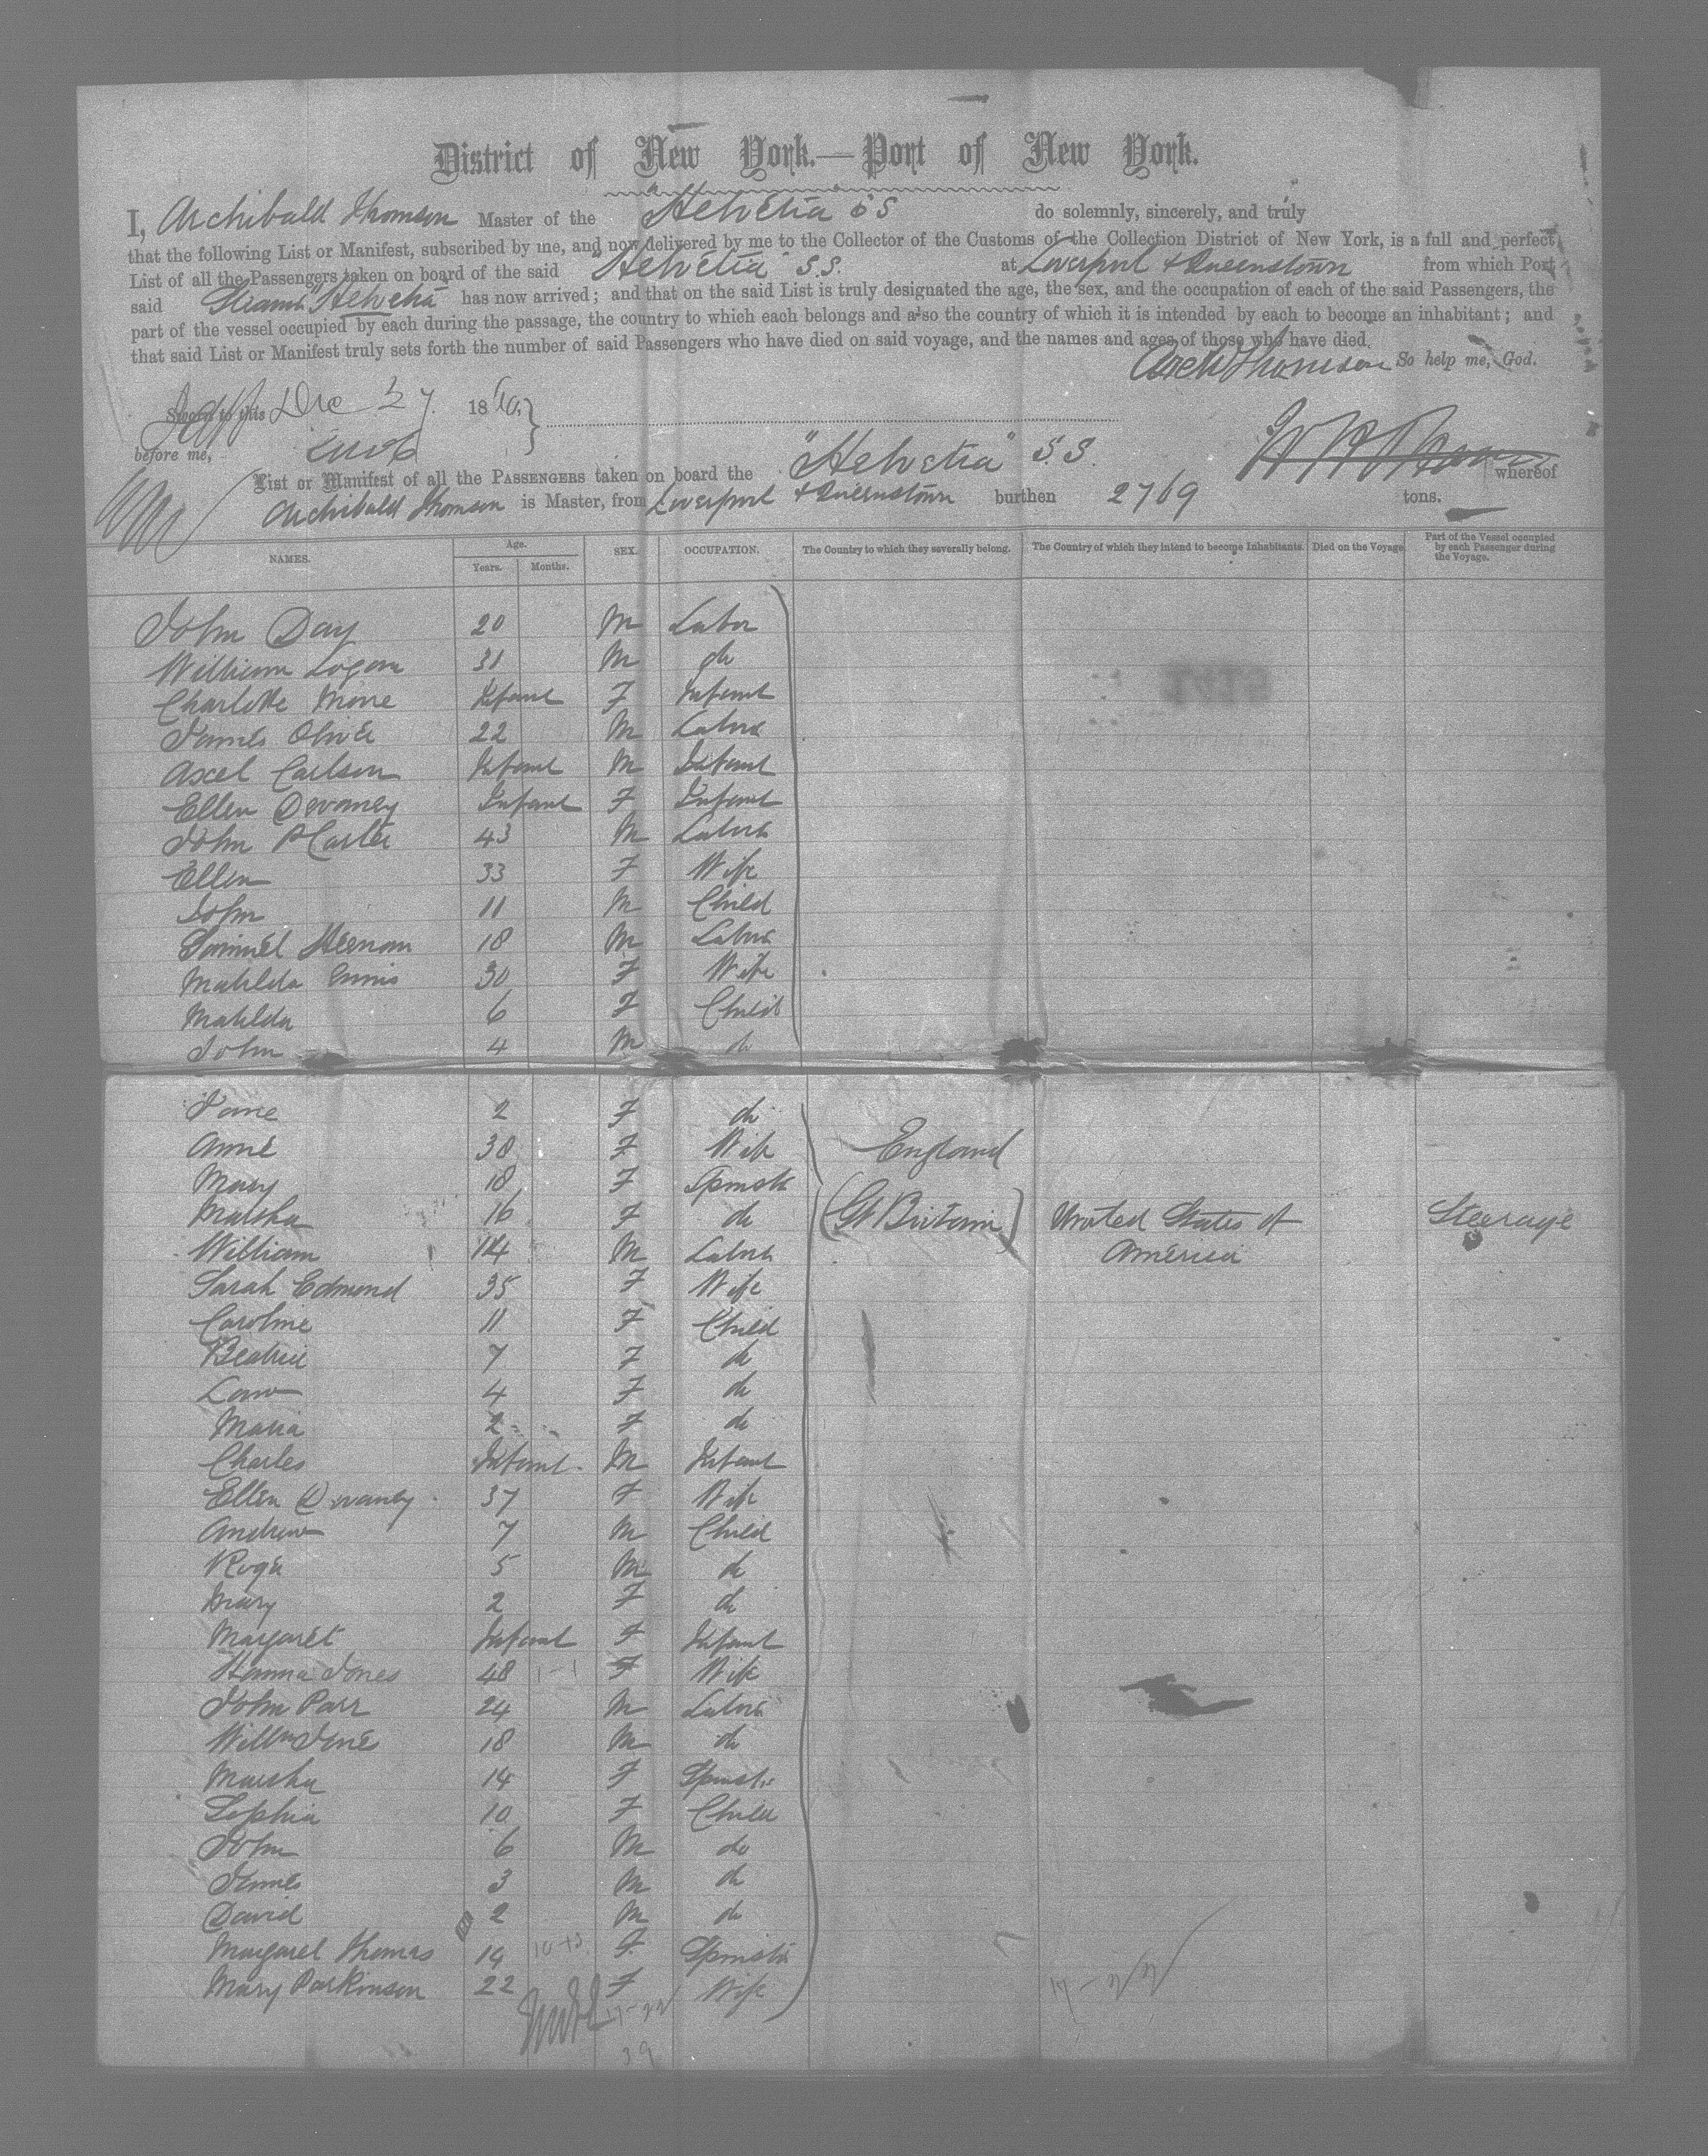 District of New York.—Port of New York.
I, Archibald Thomson Master of the "Helvetia" SS do solemnly, sincerely, and truly
that the following List or Manifest, subscribed by me, and now delivered by me to the Collector of the Customs of the Collection District of New York, is a full and perfect
List of all the Passengers taken on board of the said "Helvetia" S.S. at Liverpool & Queenstown from which Port
said Steamr "Helvetia" has now arrived; and that on the said List is truly designated the age, the sex, and the occupation of each of the said Passengers, the
part of the vessel occupied by each during the passage, the country to which each belongs and also the country of which it is intended by each to become an inhabitant; and
that said List or Manifest truly sets forth the number of said Passengers who have died on said voyage, and the names and ages of those who have died.
Arch Thomson So help me, God.
Sworn to this Dec 27 18
before me,
List or Manifest of all the PASSENGERS taken on board the "Helvetia" S.S. whereof
Archibald Thomson is Master, from Liverpool & Queenstown burthen 2769 tons.
NAMES. Age. Years. Months. SEX. OCCUPATION. The Country to which they severally belong. The Country of which they intend to become Inhabitants. Died on the Voyage. Part of the Vessel occupied by each Passenger during the Voyage.
John Day 20 M Labor
William Logan 31 M do
Charlotte Infant F Infant
James Oliver 22 M Labora
Axel Carlson Infant M Infant
Ellen Devaney Infant F Infant
John 43 M Labora
Ellen 33 F Wife
John 11 M Child
Samuel Heenan 18 M Labora
Matilda Ennis 30 F Wife
Matilda 6 F Child
John 4 M do
Jane 2 F do
Anne 30 F Wife England
Mary 18 F Spinstr
Martha 16 F do (Gt Britain) United States of Steerage
William 14 M Labora America
Sarah Edmond 35 F Wife
Caroline 11 F Child
Beatrice 7 F do
4 F do
Maria 2 F do
Charles Infant M Infant
Ellen Devaney 37 F Wife
Andrew 7 M Child
Roger 5 M do
Mary 2 F do
Margaret Infant F Infant
Hanna Jones 48 F Wife
John Parr 24 M Labora
Willm Jones 18 M do
Martha 14 F Spinstr
Sophia 10 F Child
John 6 M do
James 3 M do
David 2 M do
Margaret Thomas 19 F Spinstr
Mary Parkinson 22 F Wife
17-22
39